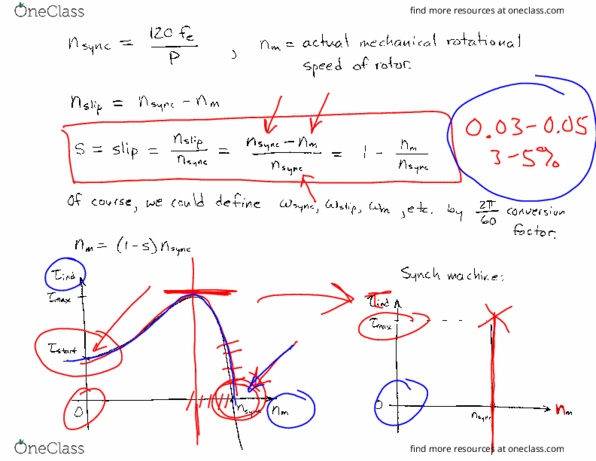 OneClass
find more resources at oneclass.com
n_sync = 120 f_e / P , n_m = actual mechanical rotational speed of rotor.
n_slip = n_sync - n_m
S = slip = n_slip / n_sync = n_sync - n_m / n_sync = 1 - n_m / n_sync
0.03-0.05
3-5%
Of course, we could define ω_sync, ω_slip, ω_m, etc. by 2π/60 conversion factor.
n_m = (1-s) n_sync
τ_ind
τ_max
τ_start
0
n_sync
n_m
Synch machine:
τ_ind
τ_max
0
n_sync
n_m
OneClass
find more resources at oneclass.com